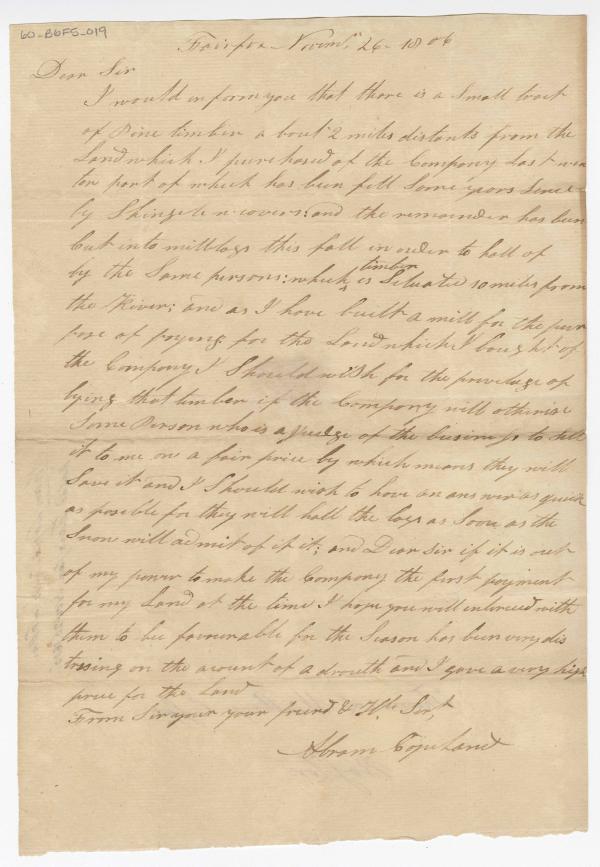 60-B6F5-019
Fairfax Novemr. 26 - 1806
Dear Sir
I would inform you that thare is a Small tract
of Pine timber a bout 2 miles distants from the
Land which I purchased of the Company last win
ter part of which has ben fell Some years Since
by Shingel weavers: and the remainder has ben
Cut into mill logs this fall in order to hall of
by the Same persons: which timber is Setuated 10 miles from
the River; and as I have built a mill for the pur
pose of paying for the Land which I bought of
the Company I Should wish for the priveluge of
bying that timber if the Company will otherise
Some Person who is a Judge of the busings to sell
it to me on a fair price by which means they will
Save it and I Should wish to have an answer as quick
as posible for they will hall the logs as Soon as the
Snow will admit of it it; and Dear Sir if it is out
of my power to make the Company the first payment
for my Land at the time I hope you will interceed with
them to be favourable for the Season has ben very dis
tresing on the acount of a drouth and I gave a very high
price for the Land
From Sir your your friend & Hble Servt
Abram Copeland